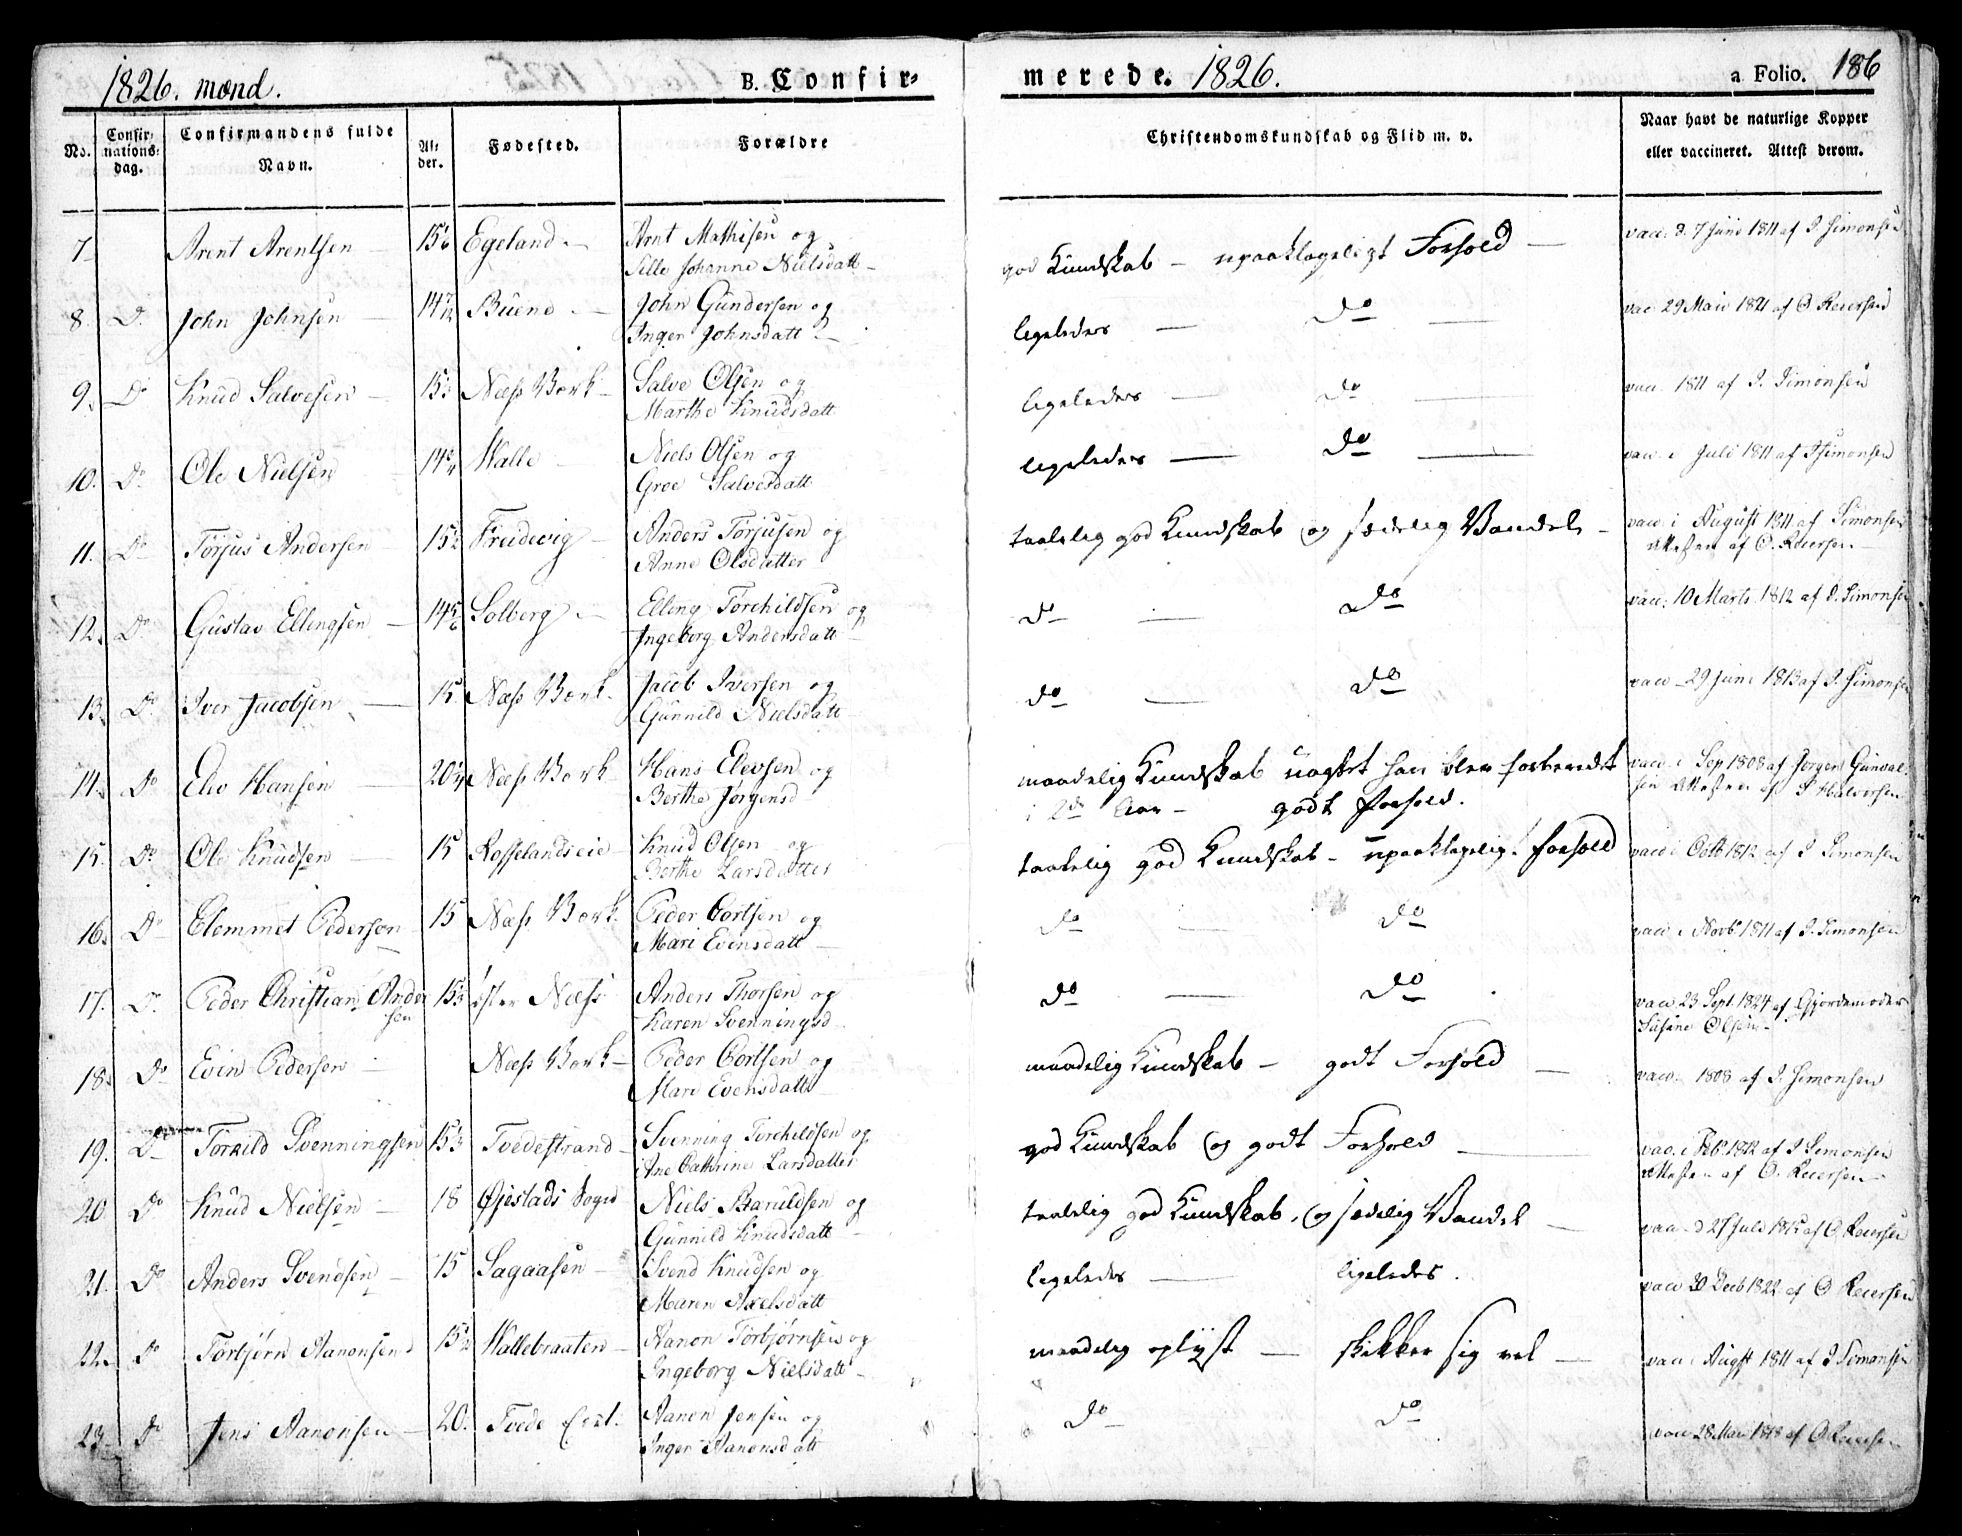 1826. mænd.
B. Confir-
merede. 1826.
a. Folio. 186
No.
Confir-
nations-
dag.
Confirmandens fulde
Navn.
Al-
der.
Fødested.
Forældre
Christendomskundskab og Flid m. v.
Naar havt de naturlige Kopper
eller vaccineret. Attest derom.
7 Arent Arentsen — 15 Egeland — Arnt Mathisen og
Sille Johanne Nielsdatt —
god Kundskab — upaaklageligt Forhold — vacc. d. 7 Juni 1811 af J. Simonsen
8. Do John Johnsen — 14 Buene — John Gundersen og
Inger Johnsdatt —
ligeledes — Do — vac 29 Mai 1821 af O Reiersen
9. Do Knud Salvesen — 15 Næss Værk — Salve Olsen og
Marthe Knudsdatt
ligeledes — Do — vacc. 1811 af J. Simonsen
10. Do Ole Nielsen 14 Walle — Niels Olsen og
Groe Salvesdatt
ligeledes — Do — vacc. i Juli 1811 af J Simonsen
11. Do Torjus Andersen 15 Freidivig — Anders Torjusen og
Anne Olsdatter
taalelig god Kundskab og sædelig Vandel — vacc. i August 1811 af Simonsen
Attesten af O. Reiersen —
12. Do Gustav Ellingsen — 14 Solberg — Elling Torchildsen og
Ingeborg Andersdatt —
Do — Do vacc: 10 Marts 1812 af J. Simonsen
13. Do Iver Jacobsen — 15 Næss Værk — Jacob Iversen og
Gunnild Nielsdatt —
Do — Do vacc — 29 June 1813 af J. Simonsen
14. Do Elev Hansen — 20 Næss Værk — Hans Elevsen og
Berthe Jørgensd
maadelig Kundskab uagtet han blev forberedt
i 2de Aar — godt Forhold.
vacc. i Sep 1808 af Jørgen Gunval
sen Attesten af J Halvorsen
15. Do Ole Knudsen — 15 Rosselandseie — Knud Olsen og
Berthe Larsdatter
taalelig god Kundskab — upaaklagelig. forhold vacc i Octb 1812 af J Simonsen
16. Do Clemmet Pedersen 15 Næss Værk — Peder Cortsen og
Mari Evensdatt —
Do — Do vacc i Novbr 1811 af J. Simonsen
17. Do Peder Christian Ander
sen
15 Øster Næss Anders Thorsen og
Karen Svenningsd
Do — Do vacc 23 Sept. 1824 af Gjordemoder
Susine Olsen —
18. Do Evin Pedersen — Næss Værk — Peder Cortsen og
Mari Evensdatt
maadelig Kundskab — godt Forhold — vacc. 1808 af J. Simonsen
19. Do Torkild Svenningsen 15 Tvedestrand — Svenning Torchildsen og
Ane Cathrine Larsdatter
god Kundskab og godt Forhold — vac. i Feb. 1812 af J Simonsen
Attesten af O. Reiersen —
20 Do Knud Nielsen — 18 Øjestads Sogn Niels Baruldsen og
Gunnild Knudsdatt —
taalelig god Kundskab, og sædelig Vandel — vacc d 27 Juli af O Reiersen
21. Do Anders Svendsen — 15 Sagaasen — Svend Knudsen og
Maren Axelsdatt
ligeledes — ligeledes. vacc 30 Decb 1822 af O Reiersen
22. Do Torbjørn Aanonsen 15 Wallebraaten — Aanon Torbjørnsen og
Ingeborg Nielsdatt —
maadelig oplyst — skikker sig vel — vacc i Augst 1811 af J Simonsen
23 Do Jens Aanonsen — 20. Tvede Aanen Jensen og
Inger Aanonsdatt
Do Do vacc 28 Mai 1818 af O Reiersen